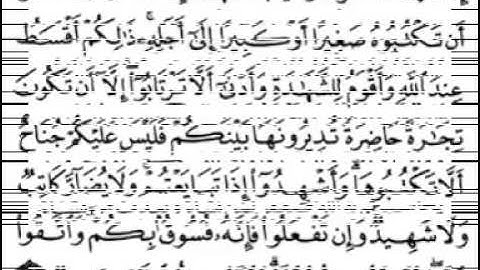 أَن تَكْتُبُوهُ صَغِيرًا أَوْ كَبِيرًا إِلَىٰ أَجَلِهِۦ ۚ ذَٰلِكُمْ أَقْسَطُ
عِندَ ٱللَّهِ وَأَقْوَمُ لِلشَّهَٰدَةِ وَأَدْنَىٰٓ أَلَّا تَرْتَابُوٓا۟ ۖ إِلَّآ أَن تَكُونَ
تِجَٰرَةً حَاضِرَةً تُدِيرُونَهَا بَيْنَكُمْ فَلَيْسَ عَلَيْكُمْ جُنَاحٌ
أَلَّا تَكْتُبُوهَا ۗ وَأَشْهِدُوٓا۟ إِذَا تَبَايَعْتُمْ ۚ وَلَا يُضَآرَّ كَاتِبٌ
وَلَا شَهِيدٌ ۚ وَإِن تَفْعَلُوا۟ فَإِنَّهُۥ فُسُوقٌۢ بِكُمْ ۗ وَٱتَّقُوا۟